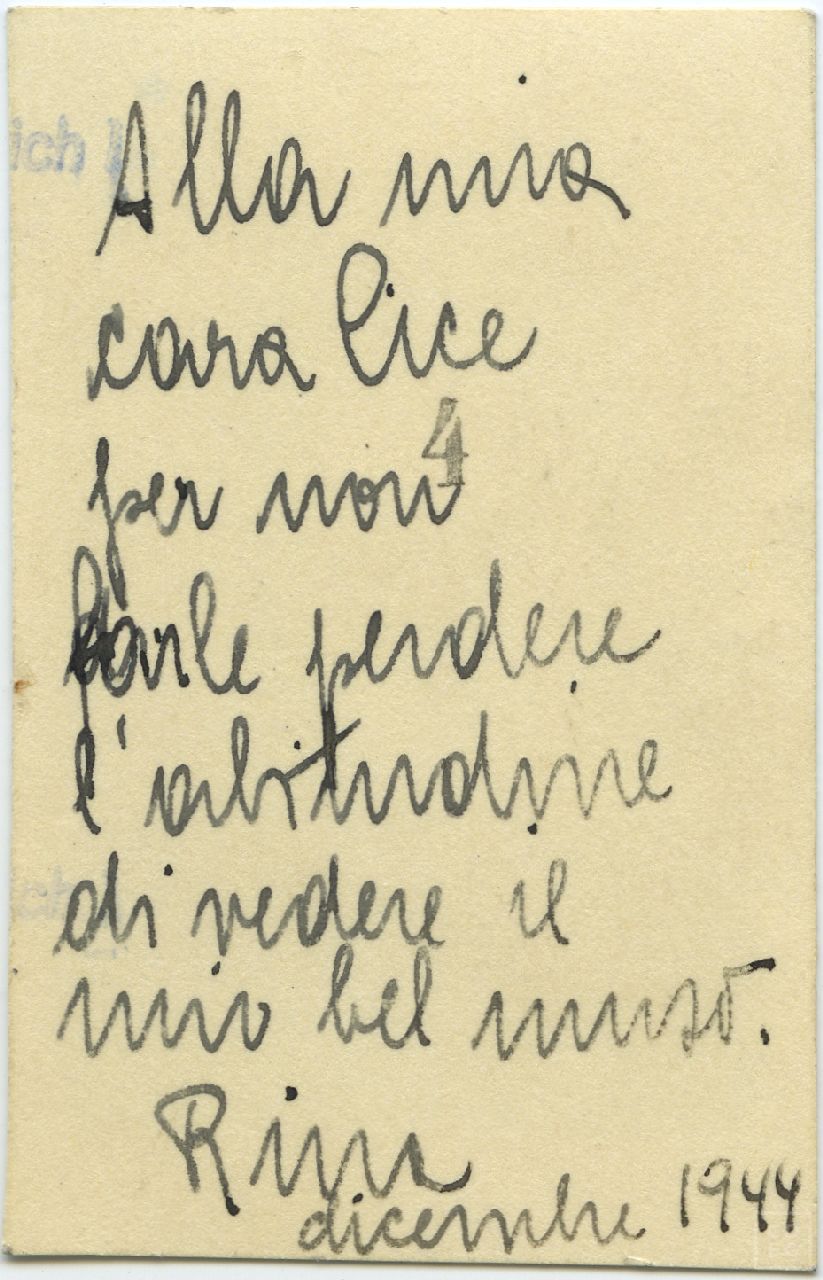 Alla mia
cara Cice
4
per non
farle perdere
l'abitudine
di vedere il
mio bel muso.
Rina
dicembre 1944